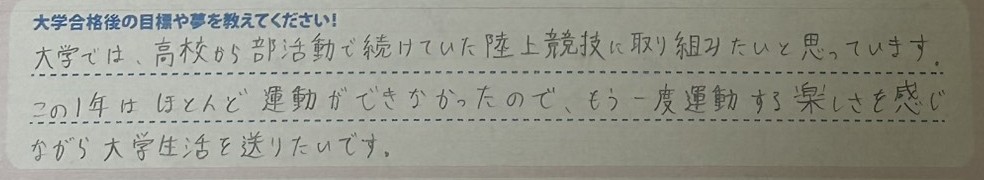 大学合格後の目標や夢を教えてください!
大学では、高校から部活動で続けていた陸上競技に取り組みたいと思っています。
この1年はほとんど運動ができなかったので、もう一度運動する楽しさを感じ
ながら大学生活を送りたいです。